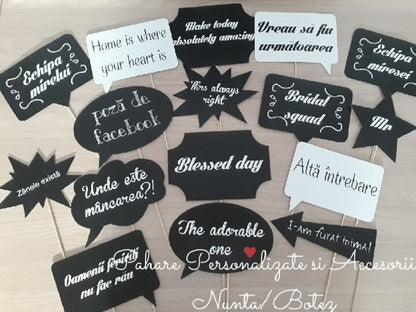 Echipa
mirelui
Home is where
your heart is
Make today
absolutely amazing
Vreau să fiu
următoarea
Echipa
miresei
poză de
facebook
Mrs always
right
Bridal
squad
Mr
Zânele există
Unde este
mâncarea?!
Blessed day
Altă întrebare
The adorable
one
I-am furat inima!
Oamenii fericiți
nu fac rău
Pahare Personalizate si Accesorii
Nunta/Botez